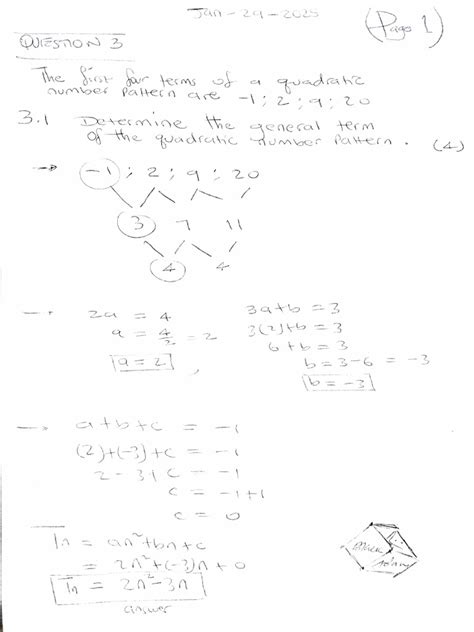 Jan-29-2025
(Page 1)
QUESTION 3
The first four terms of a quadratic
number pattern are -1; 2; 9; 20
3.1 Determine the general term
of the quadratic number pattern. (4)
→ -1; 2; 9; 20
3 7 11
4 4
→ 2a = 4 3a+b = 3
a = 4/2 = 2 3(2)+b = 3
a = 2, 6+b = 3
b = 3-6 = -3
b = -3
→ a+b+c = -1
(2)+(-3)+c = -1
2-3+c = -1
c = -1+1
c = 0
Tn = an²+bn+c
= 2n²+(-3)n+0
Tn = 2n²-3n
answer